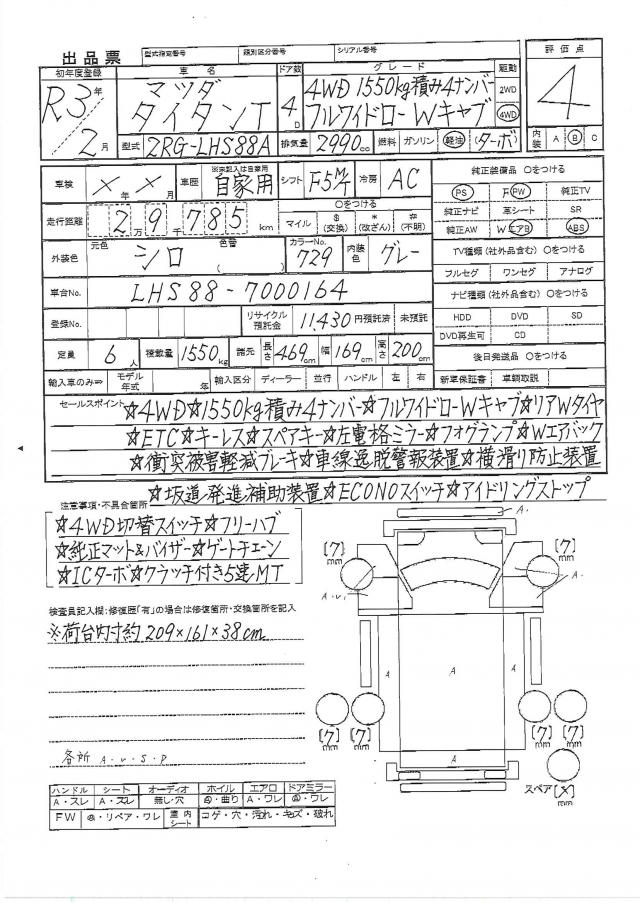 出品票 型式指定番号 類別区分番号 シリアル番号 評価点
初年度登録 車名 ドア数 グレード 駆動
R3年 2月 マツダ タイタンT 4D 4WD 1550kg積み4ナンバー フルワイドローWキャブ 2WD 4WD 4
型式 2RG-LHS88A 排気量 2990cc 燃料 ガソリン 軽油 ターボ 内装 A B C
車検 ×年×月 車歴 ※未記入は自家用 自家用 シフト F5M/T 冷房 AC 純正装備品 ○をつける
走行距離 2万9千785km ○をつける マイル $(交換) *(改ざん) #(不明) PS PW 純正TV
純正ナビ 革シート SR
純正AW WエアB ABS
外装色 元色 シロ 色替 ( ) カラーNo. 729 内装色 グレー TV種類(社外品含む) ○をつける
フルセグ ワンセグ アナログ
車台No. LHS88-7000164 ナビ種類(社外品含む) ○をつける
登録No. リサイクル預託金 11,430円預託済 未預託 HDD DVD SD
DVD再生可 CD
定員 6人 積載量 1550kg 諸元 長さ 469cm 幅 169cm 高さ 200cm 後日発送品 ○をつける
輸入車のみ⇒ モデル年式 年 輸入区分 ディーラー 並行 ハンドル 左 右 新車保証書 車輌取説
セールスポイント ☆4WD☆1550kg積み4ナンバー☆フルワイドローWキャブ☆リアWタイヤ
☆ETC☆キーレス☆スペアキー☆左電格ミラー☆フォグランプ☆Wエアバック
☆衝突被害軽減ブレーキ☆車線逸脱警報装置☆横滑り防止装置
☆坂道発進補助装置☆ECONOスイッチ☆アイドリングストップ
注意事項・不具合箇所
☆4WD切替スイッチ☆フリーハブ
☆純正マット&バイザー☆ゲートチェーン
☆ICターボ☆クラッチ付き5速MT
検査員記入欄:修復歴「有」の場合は修復箇所・交換箇所を記入
※荷台内寸約209×161×38cm
各所 A・U・S・P
A・
[7]mm [7]mm
A・U・ A・
A A A
[7]mm [7]mm [7]mm [7]mm
A
スペア[×]mm
ハンドル シート オーディオ ホイル エアロ ドアミラー
A・スレ A・スレ 無し・穴 曲り A・ワレ ワレ
FW リペア・ワレ 室内シート コゲ・穴・汚れ・キズ・破れ